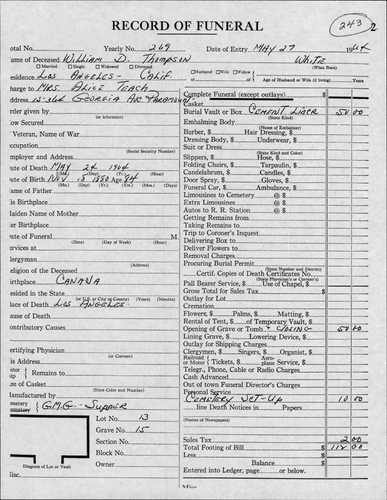 RECORD OF FUNERAL
243
2
otal No. Yearly No. 269 Date of Entry MAY 27
ame of Deceased William D. Thompson White
Married Single Widowed Divorced (What Race)
esidence Los Angeles - Calif. Husband Wife Widow of Age of Husband or Wife (if living) Years
harge to MRS. Alice Teach Complete Funeral (except outlays) $
ddress Georgia Av. Paramount Casket
rder given by Burial Vault or Box Cement Liner 50 00
(or informant) (State Kind)
ow Secured Embalming Body
(Name of Embalmer)
Veteran, Name of War Barber, $ Hair Dressing, $
Dressing Body, $ Underwear, $
ccupation Suit or Dress
(Social Security Number) (State Kind and Color)
mployer and Address Slippers, $ Hose, $
ate of Death MAY 24 1964 Folding Chairs, $ Tarpaulin, $
(Mo.) (Day) (Yr.) Candelabrum, $ Candles, $
ate of Birth Nov 10 1880 Age 84 Door Spray, $ Gloves, $
(Mo.) (Day) (Yr.) (Yrs.) (Mo.) (Days) Funeral Car, $ Ambulance, $
ame of Father Limousines to Cemetery @ $
is Birthplace Extra Limousines @ $
laiden Name of Mother Autos to R. R. Station @ $
er Birthplace Getting Remains from
Taking Remains to
ate of Funeral M. Trip to Coroner's Inquest
(Date) (Day of Week) (Hour) Delivering Box to
ervices at Deliver Flowers to
lergyman Removal Charges
(Address) Procuring Burial Permit
eligion of the Deceased (State Number and District)
Certif. Copies of Death Certificates No.
(State Physician's or Coroner's)
irthplace Canada Pall Bearer Service, $ Use of Chapel, $
esided in the State Gross Total for Sales Tax $
(or U.S. or City or County) (Years) (Months) Outlay for Lot
lace of Death Los Angeles. Cremation
ause of Death Flowers, $ Palms, $ Matting, $
Rental of Tent, $ of Temporary Vault, $
ontributory Causes Opening of Grave or Tomb + Casing 50 00
Lining Grave, $ Lowering Device, $
Outlay for Shipping Charges
ertifying Physician Clergymen, $ Singers, $ Organist, $
(or Coroner)
is Address Railroad or Motor Tickets, $ Aeroplane Service, $
Telegr., Phone, Cable or Radio Charges
Remains to Cash Advanced
Out of town Funeral Director's Charges
ze of Casket Personal Service
(State Color and Number) Cemetery Set-Up 10 00
anufactured by line Death Notices in Papers
metery G.M.G. - Supper
Lot No. 13 (Names of Newspapers)
Grave No. 15
Section No. Sales Tax 2 00
Block No. Total Footing of Bill $ 112 00
Less $
Owner Balance $
Diagram of Lot or Vault Entered into Ledger, page or below.
isc.